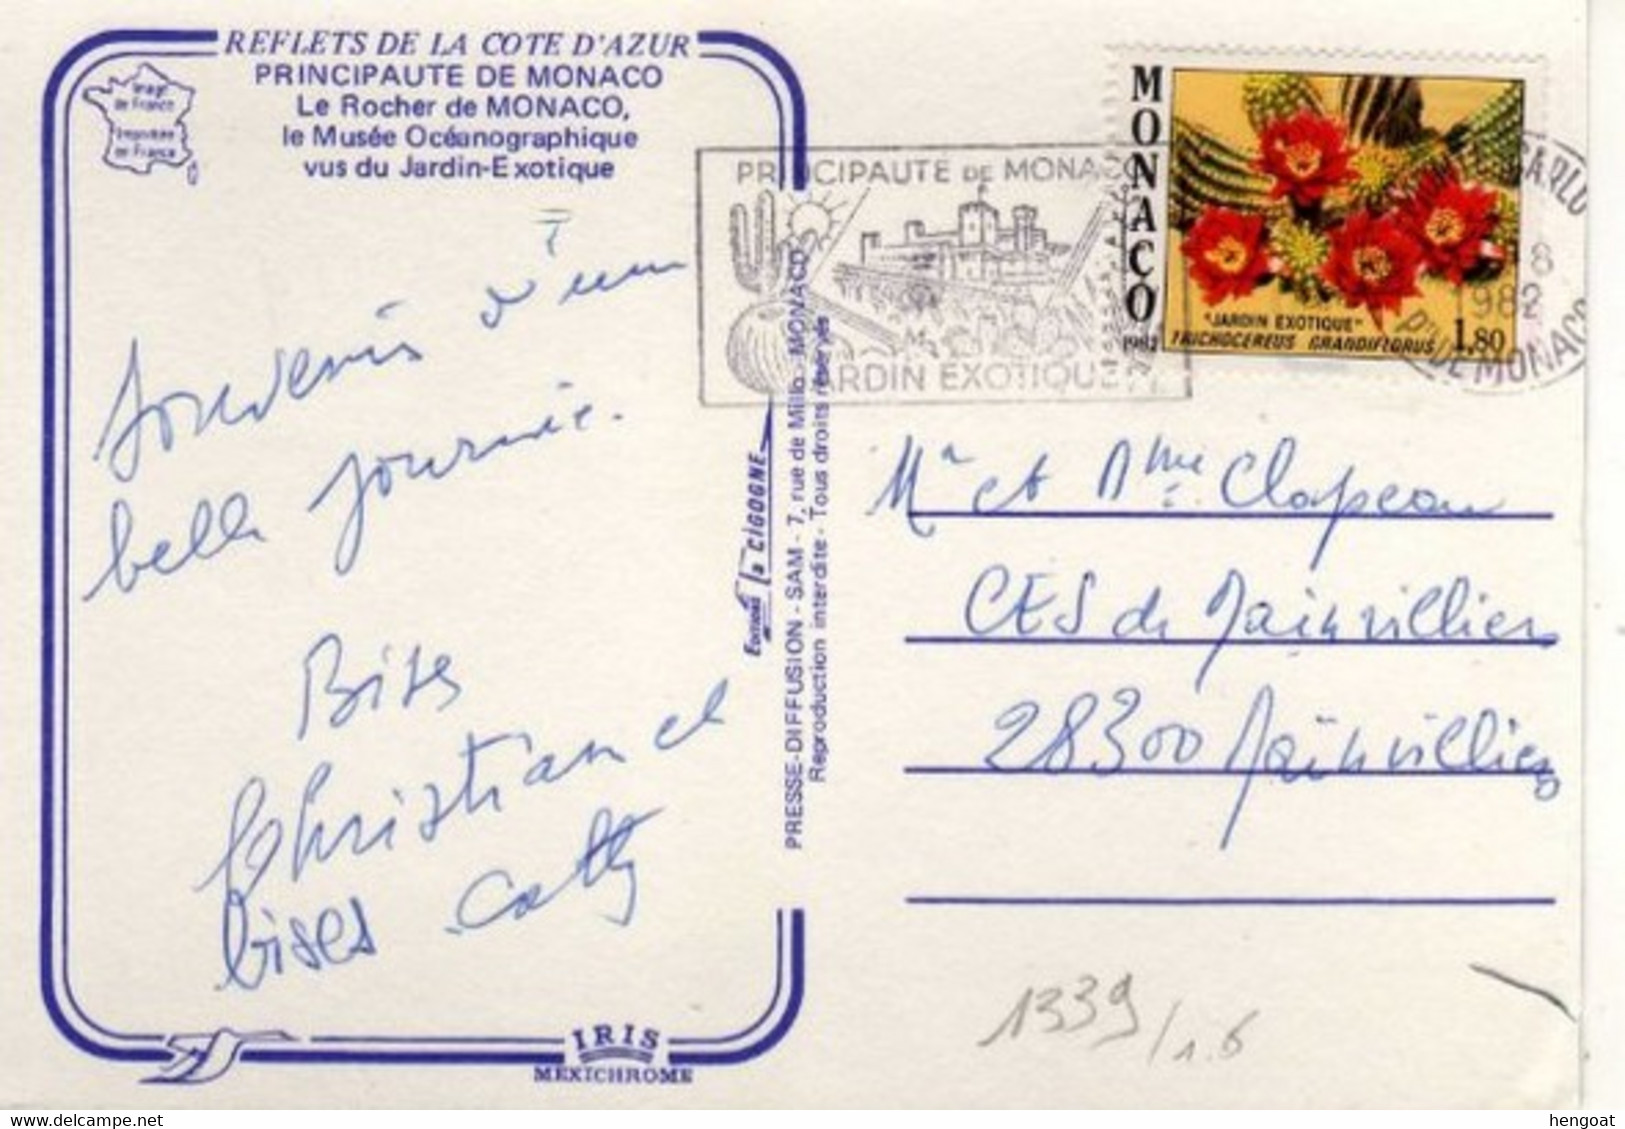 REFLETS DE LA COTE D'AZUR
PRINCIPAUTE DE MONACO
Le Rocher de MONACO,
le Musée Océanographique
vus du Jardin-Exotique
Image
de France
Imprimée
de France
Souvenir d'une
belle journée.
Bises
Christian et
bises Cathy
IRIS
MEXICHROME
Editions la CIGOGNE
PRESSE-DIFFUSION - SAM - 7, rue de Millo - MONACO
Reproduction interdite - Tous droits réservés
PRINCIPAUTÉ DE MONACO
JARDIN EXOTIQUE
MONACO
1982
"JARDIN EXOTIQUE"
TRICHOCEREUS GRANDIFLORUS
1,80
MONTE-CARLO
8
1982
PTÉ DE MONACO
Mr et Mme Clapeau
CES de Mainvilliers
28300 Mainvilliers
1339/1.6
delcampe.net
hengoat